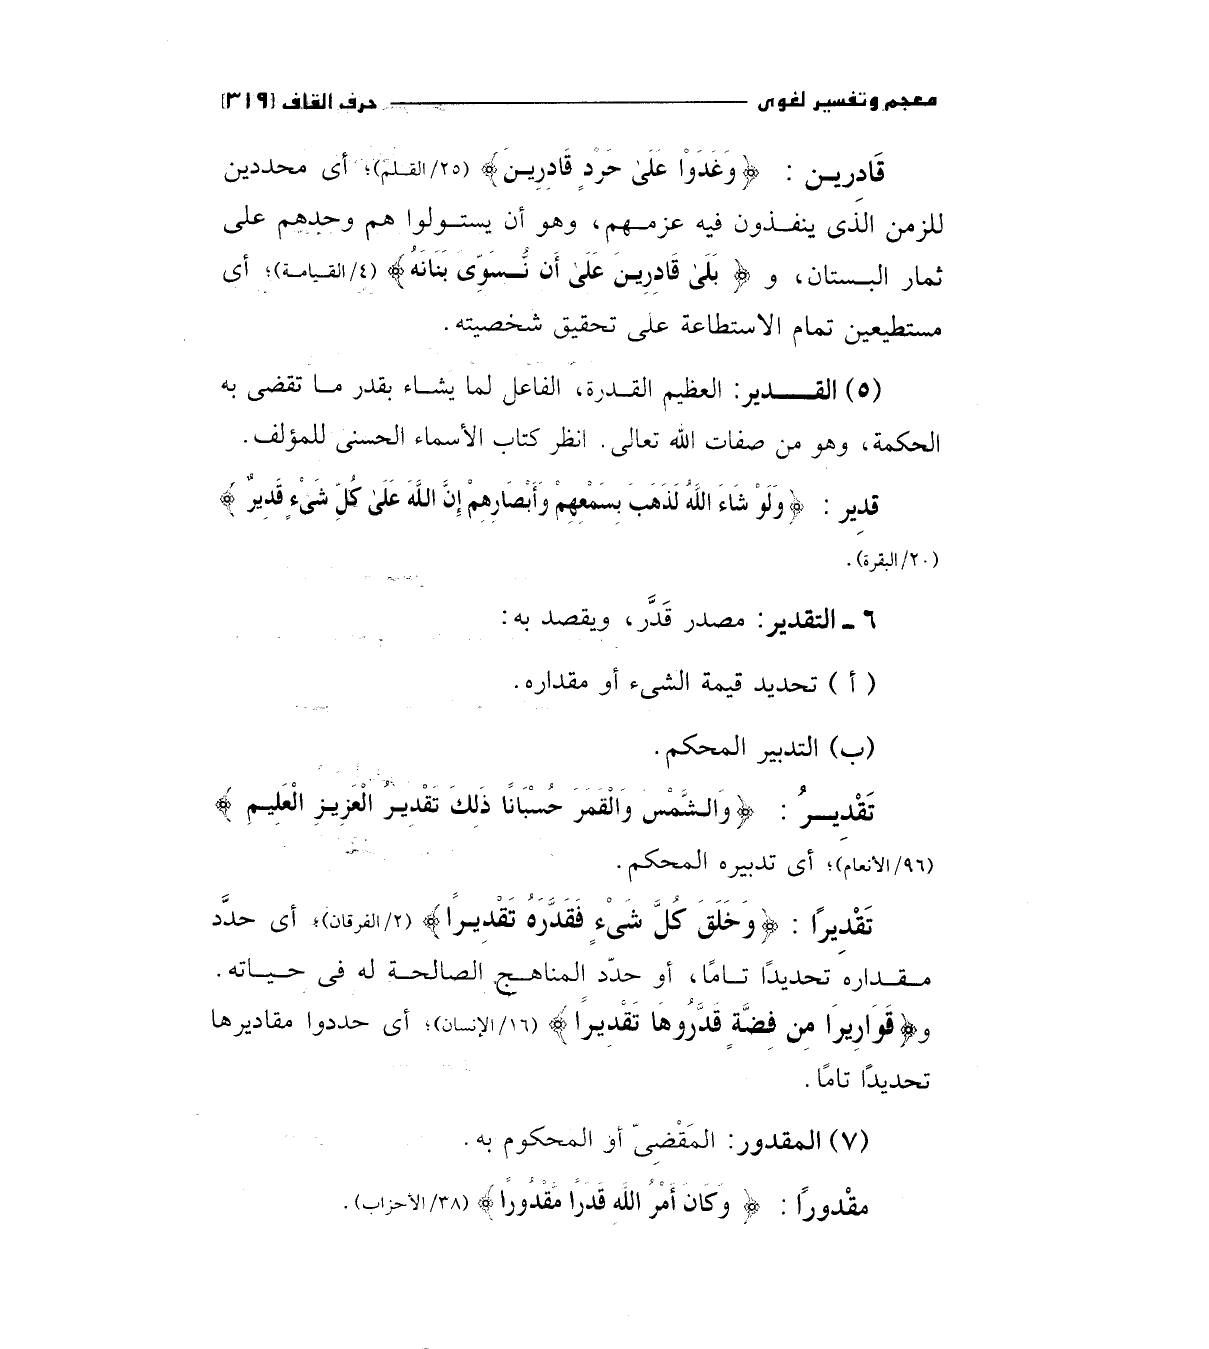 معجم وتفسير لغوى ـــــــ حرف القاف [٣١٩]
قَادِرِيـن : ﴿وَغَدَوْا عَلَىٰ حَرْدٍ قَادِرِيـنَ﴾ (٢٥/القـلم)؛ أى محددين
للزمن الذى ينفـذون فيه عزمـهم، وهو أن يستـولوا هم وحدهم على
ثمار البـستان، و ﴿ بَلَىٰ قَادِرِينَ عَلَىٰ أَن نُّسَوِّىَ بَنَانَهُ﴾ (٤/القـيامـة)؛ أى
مستطيعين تمام الاستطاعة على تحقيق شخصيته.
(٥) القــــدير: العظيم القـدرة، الفاعل لما يشـاء بقدر مـا تقضى به
الحكمة، وهو من صفات الله تعالى. انظر كتاب الأسماء الحسنى للمؤلف.
قدِير : ﴿وَلَوْ شَاءَ اللَّهُ لَذَهَبَ بِسَمْعِهِمْ وَأَبْصَارِهِمْ إِنَّ اللَّهَ عَلَىٰ كُلِّ شَىْءٍ قَدِيرٌ ﴾
(٢٠/البقرة).
٦ ـ التقدير: مصدر قَدَّر، ويقصد به:
( أ ) تحديد قيمة الشىء أو مقداره.
(ب) التدبير المحكم.
تَقْدِيــرُ : ﴿وَالـشَّمْسَ وَالْقَمَرَ حُسْبَانًا ذَلِكَ تَقْدِيرُ الْعَزِيزِ الْعَلِيمِ ﴾
(٩٦/الأنعام)؛ أى تدبيره المحكم.
تَقْدِيرًا : ﴿وَخَلَقَ كُلَّ شَىْءٍ فَقَدَّرَهُ تَقْدِيـرًا﴾ (٢/الفرقان)؛ أى حدَّد
مـقـداره تحديدًا تـامًا، أو حدّد المناهـج الصالحـة له فى حيـاته.
و﴿قَوَارِيرَا مِن فِضَّةٍ قَدَّرُوهَا تَقْدِيرًا﴾ (١٦/الإنسان)؛ أى حددوا مقاديرها
تحديدًا تامًا.
(٧) المقدور: المَقْضِىّ أو المحكوم به.
مقْدورًا : ﴿ وَكَانَ أَمْرُ اللَّهِ قَدَرًا مَّقْدُورًا﴾ (٣٨/الأحزاب).